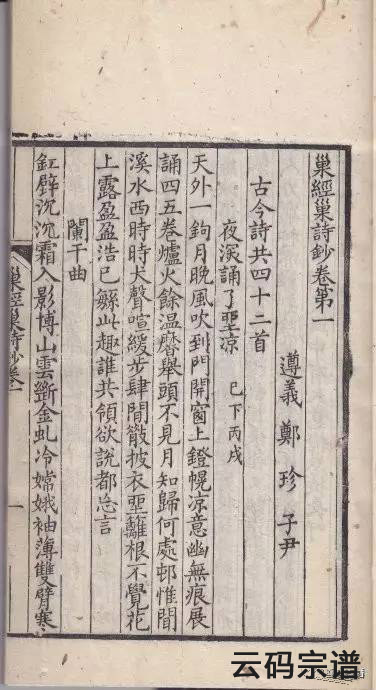 巢經巢詩鈔卷第一
遵義鄭珍子尹
古今詩共四十二首
夜深誦了坐涼 已下丙戌
天外一鉤月晚風吹到門開窗上鐙幌涼意幽無痕展
誦四五卷爐火餘温黁舉頭不見月知歸何處邨惟聞
溪水西時時犬聲喧緩步肆閒散披衣坐籬根不覺花
上露盈盈浩已緐此趣誰共領欲說都忘言
闌干曲
釭壁沉沉霜入影博山雲斷金虬冷嫦娥袖薄雙臂寒
巢經巢詩鈔卷一 一
云码宗谱